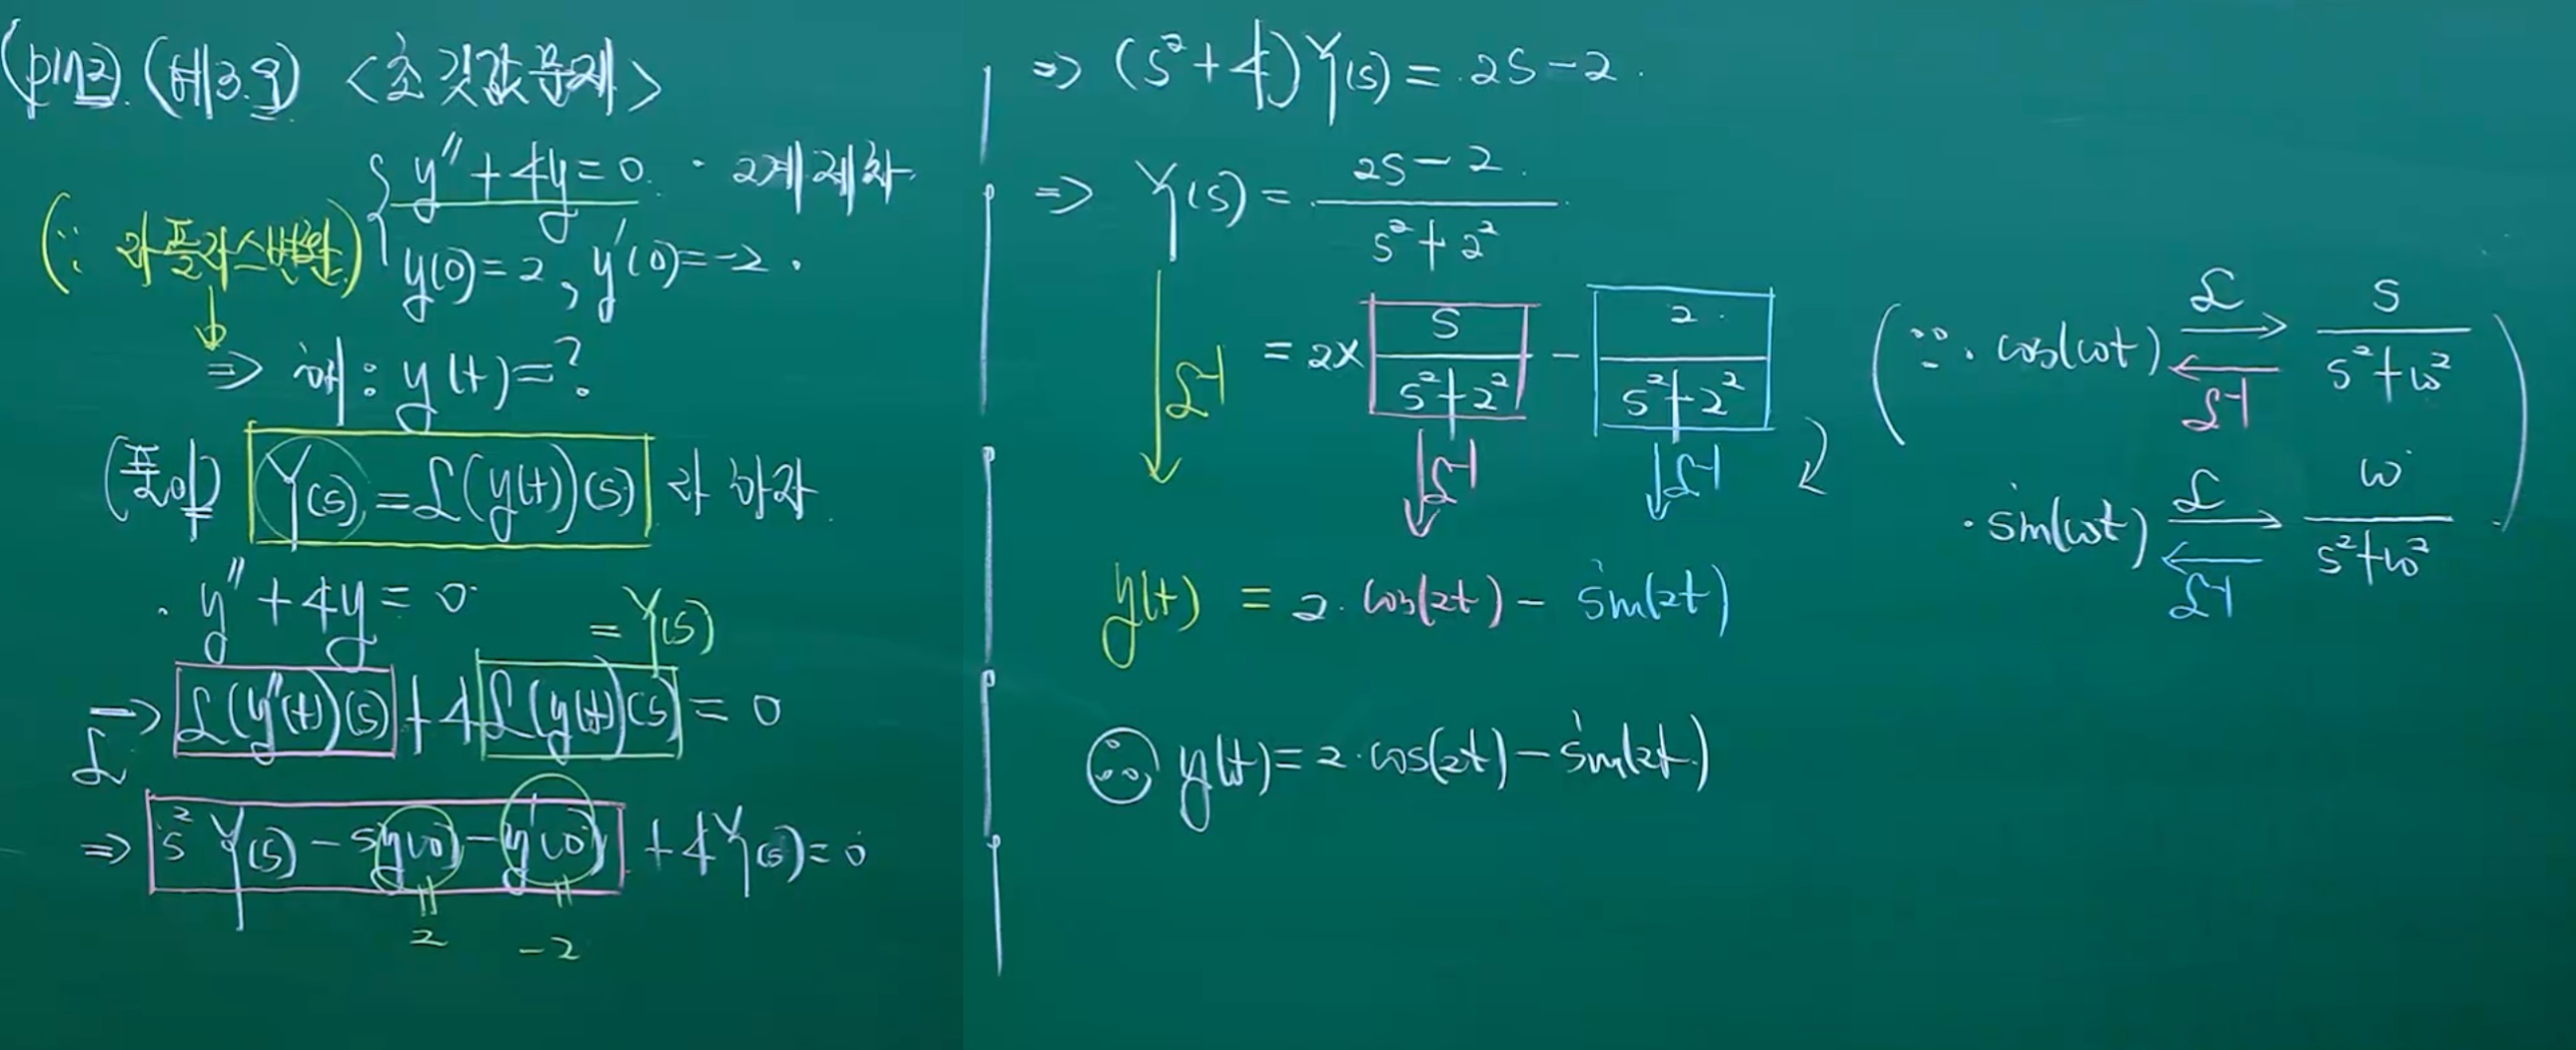 (p112) (예3.9) <초깃값 문제>
y'' + 4y = 0 . · 2계 제차
(∵ 라플라스변환) y(0) = 2 , y'(0) = -2 .
⇒ 해 : y(t) = ?
(풀이) Y(s) = ℒ(y(t))(s) 라 하자.
. y'' + 4y = 0
= Y(s)
→ ℒ(y''(t))(s) + 4ℒ(y(t))(s) = 0
ℒ
⇒ s² Y(s) - sy(0) - y'(0) + 4Y(s) = 0
= 2 = -2
⇒ (s² + 4) Y(s) = 2s - 2 .
⇒ Y(s) = (2s - 2) / (s² + 2²)
ℒ⁻¹ = 2 × s / (s² + 2²) - 2 / (s² + 2²)
ℒ⁻¹ ℒ⁻¹
y(t) = 2 · cos(2t) - sin(2t)
∴ y(t) = 2 · cos(2t) - sin(2t)
(∵ · cos(ωt) ℒ → s / (s² + ω²)
← ℒ⁻¹
· sin(ωt) ℒ → ω / (s² + ω²) )
← ℒ⁻¹